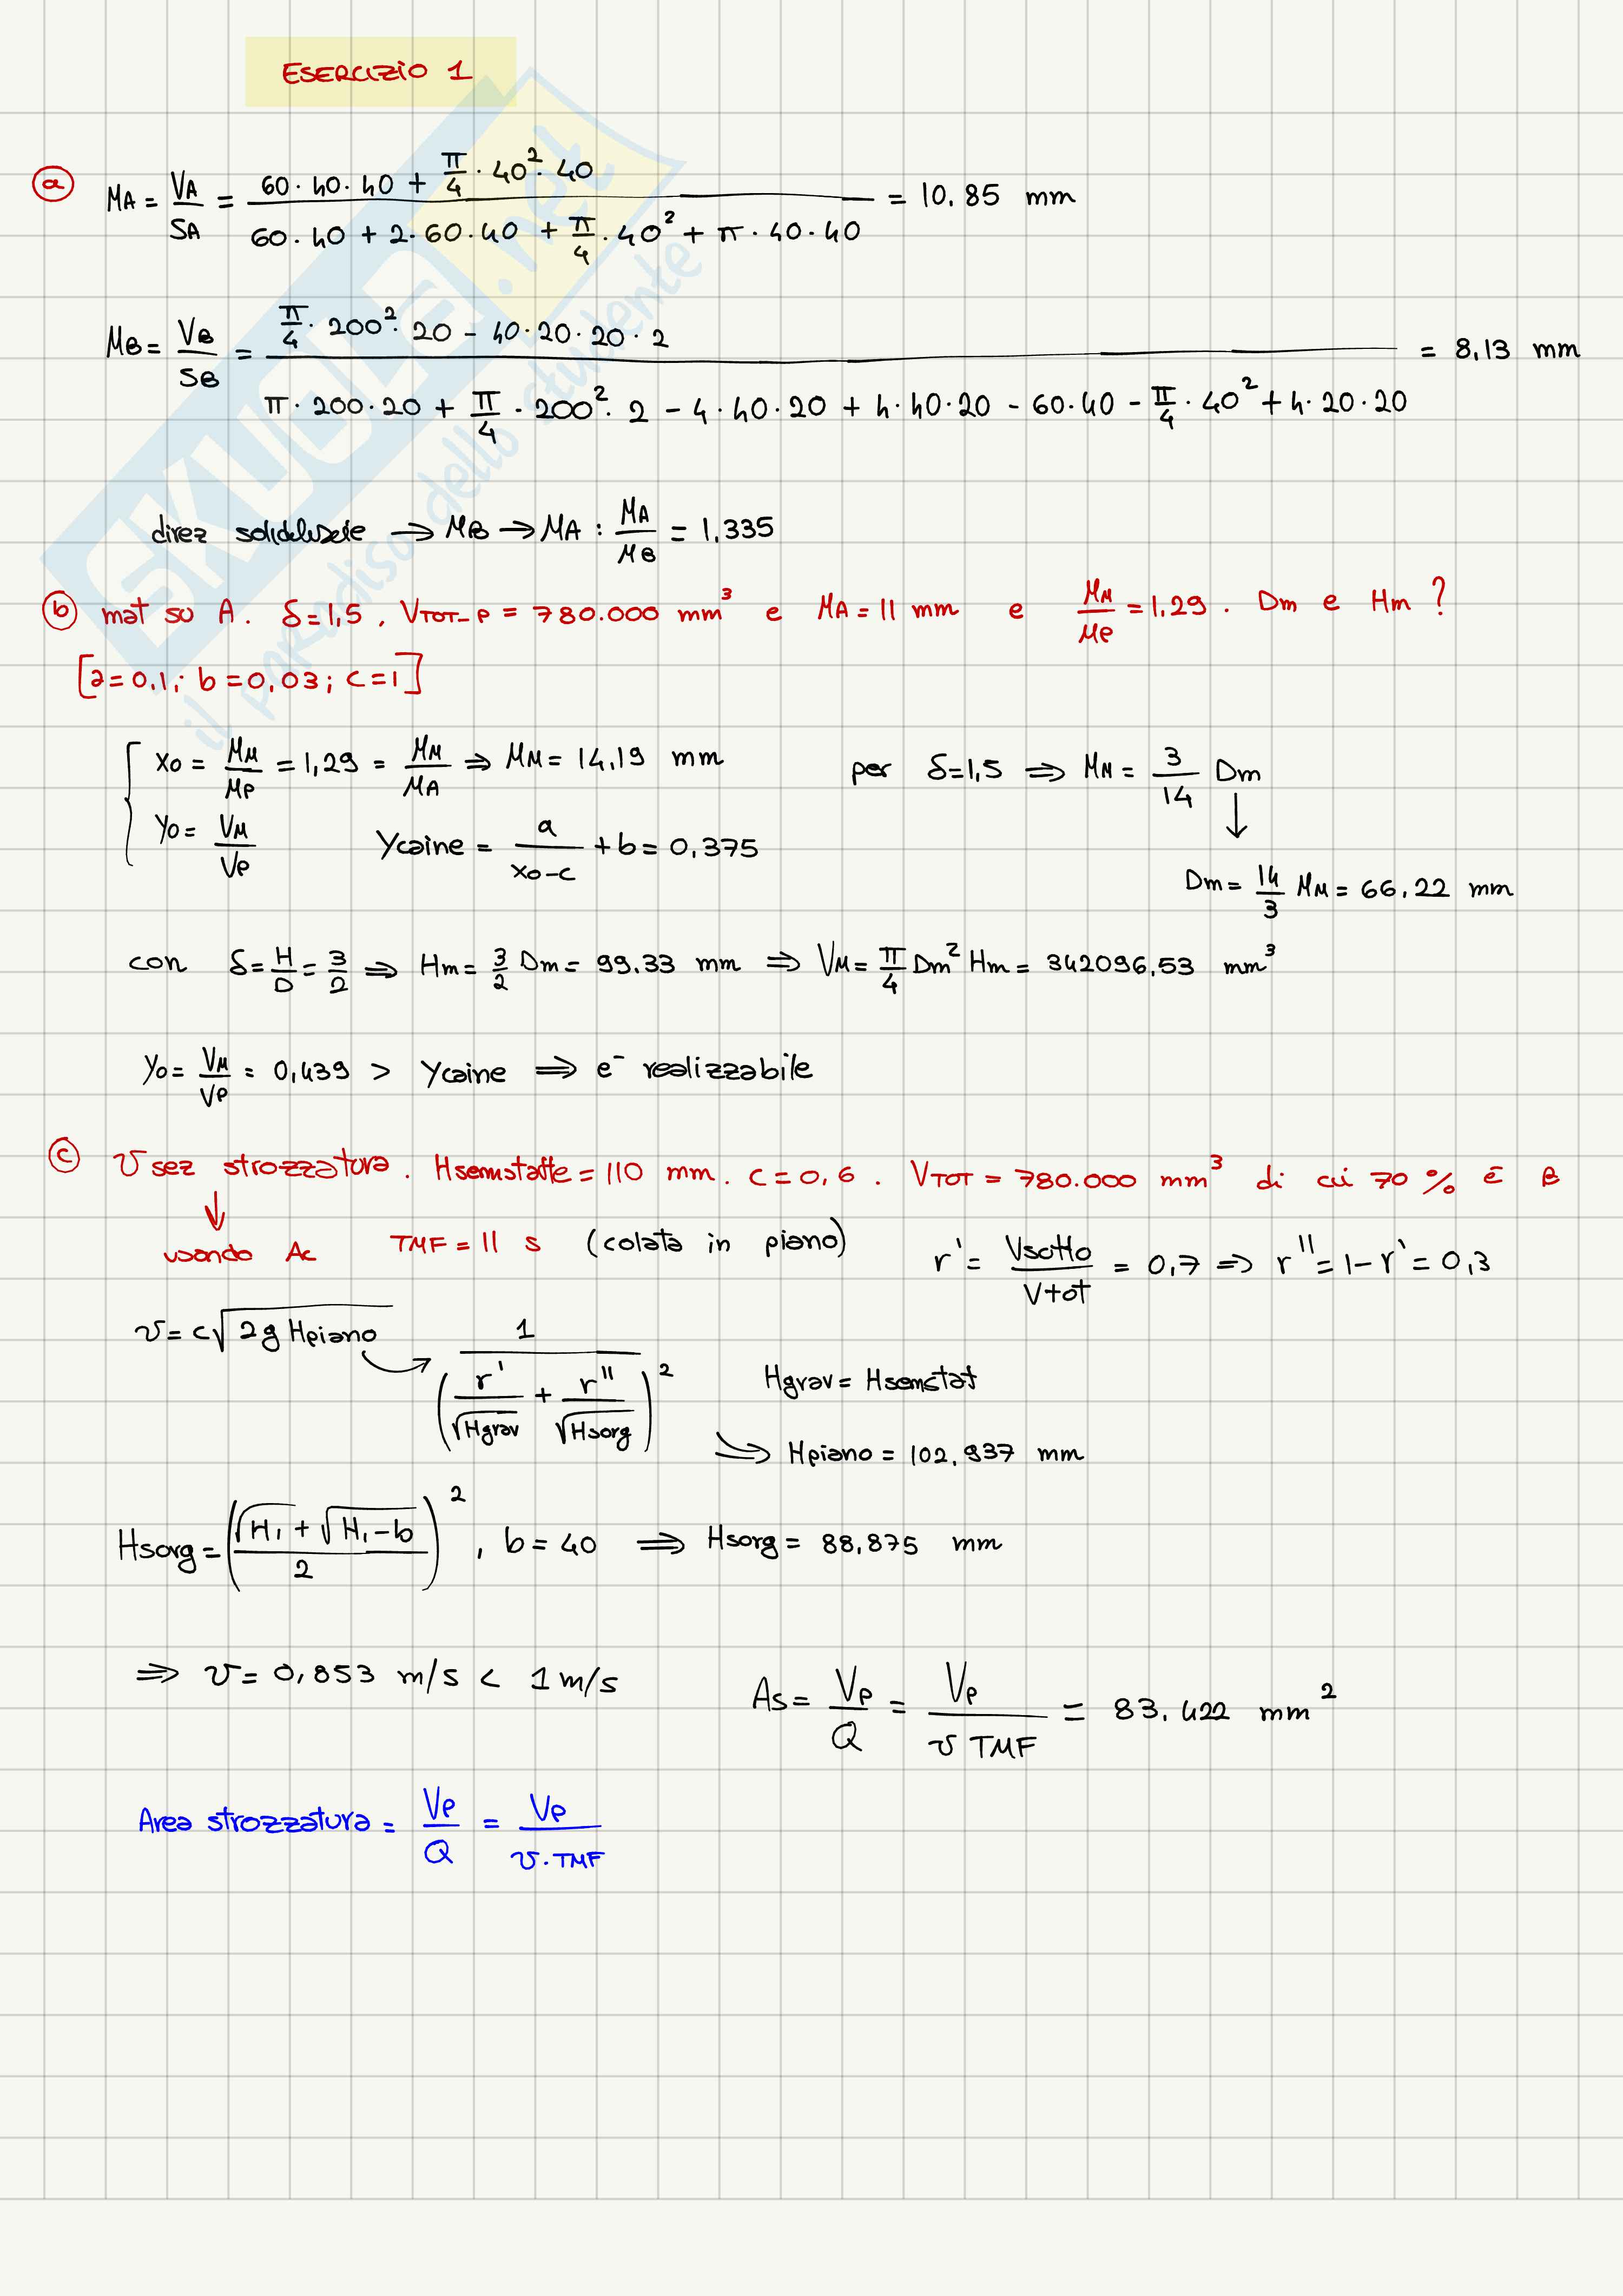 ESERCIZIO 1
ⓐ MA = VA/SA = (60·40·40 + π/4·40²·40)/(60·40 + 2·60·40 + π/4·40² + π·40·40) = 10,85 mm
MB = VB/SB = (π/4·200²·20 - 40·20·20·2)/(π·200·20 + π/4·200²·2 - 4·40·20 + 4·40·20 - 60·40 - π/4·40² + 4·20·20) = 8,13 mm
direz → MB → MA : MA/MB = 1,335
ⓑ mat su A. δ=1,5, VTOT_P = 780.000 mm³ e MA = 11 mm e MM/MP = 1,29. Dm e Hm ?
[a=0,1; b=0,03; c=1]
x0 = MM/MP = 1,29 = MM/MA ⇒ MM = 14,19 mm per δ=1,5 ⇒ MM = 3/14 Dm
↓
Y0 = VM/VP Ycaine = a/(x0-c) + b = 0,375
Dm = 14/3 MM = 66,22 mm
con δ = H/D = 3/2 ⇒ Hm = 3/2 Dm = 99,33 mm ⇒ VM = π/4 Dm² Hm = 342096,53 mm³
Y0 = VM/VP = 0,439 > Ycaine ⇒ e⁻ realizzabile
ⓒ v sez strozzatura. Hsemstaffe = 110 mm. c = 0,6. VTOT = 780.000 mm³ di cui 70 % é B
↓
usando Ac TMF = 11 s (colata in piano) r' = Vsotto/Vtot = 0,7 ⇒ r'' = 1-r' = 0,3
v = c√(2g Hpiano) → 1/(r'/√Hgrav + r''/√Hsorg)² Hgrav = Hsemstat
⇒ Hpiano = 102,937 mm
Hsorg = ((√H₁ + √(H₁-b))/2)², b = 40 ⇒ Hsorg = 88,875 mm
⇒ v = 0,853 m/s < 1 m/s As = VP/Q = VP/(v TMF) = 83,422 mm²
Area strozzatura = VP/Q = VP/(v·TMF)
SKUOLA.net
il paradiso dello studente